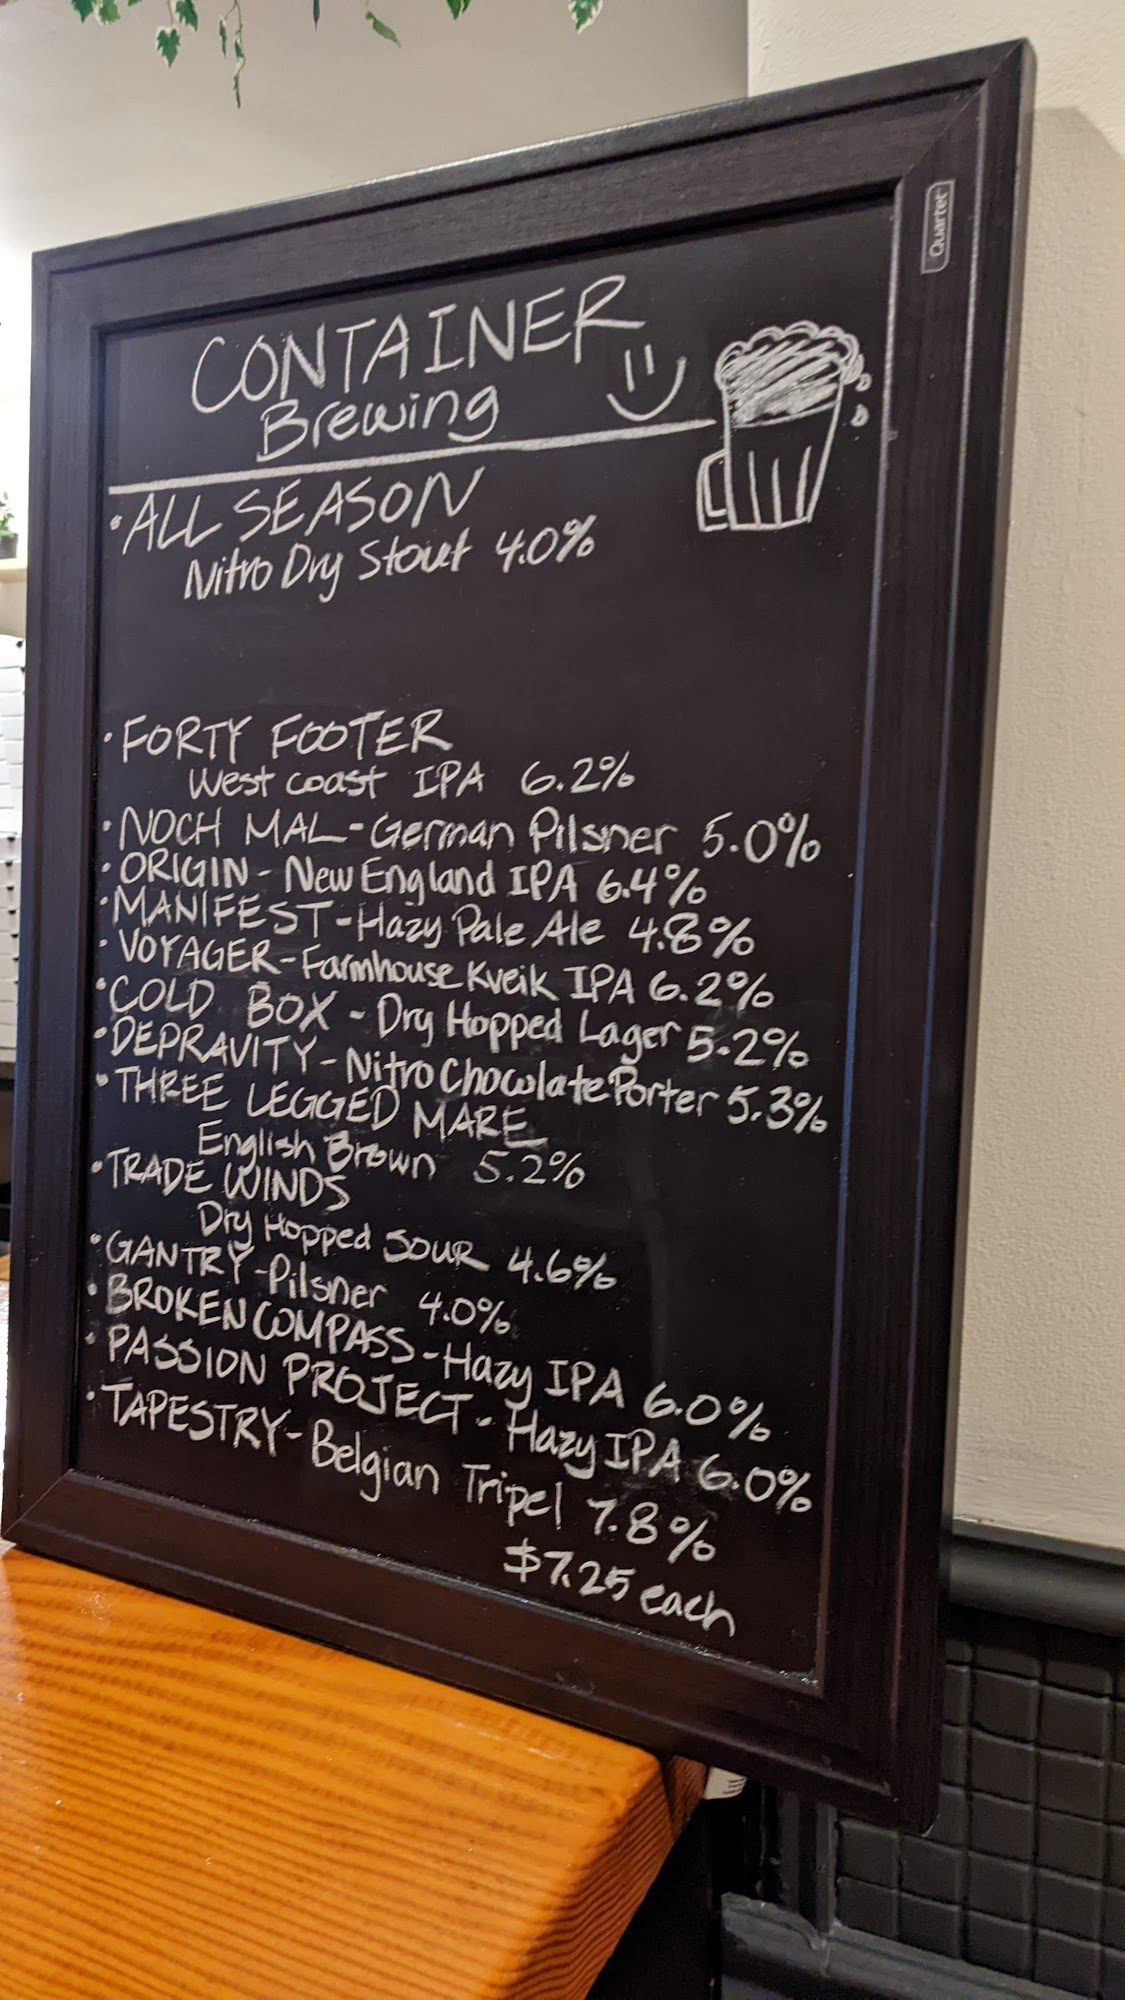 Quartet
CONTAINER
Brewing
• ALL SEASON
Nitro Dry Stout 4.0%
• FORTY FOOTER
West Coast IPA 6.2%
• NOCH MAL - German Pilsner 5.0%
• ORIGIN - New England IPA 6.4%
• MANIFEST - Hazy Pale Ale 4.8%
• VOYAGER - Farmhouse Kveik IPA 6.2%
• COLD BOX - Dry Hopped Lager 5.2%
• DEPRAVITY - Nitro Chocolate Porter 5.3%
• THREE LEGGED MARE
English Brown 5.2%
• TRADE WINDS
Dry Hopped SOUR 4.6%
• GANTRY - Pilsner 4.0%
• BROKEN COMPASS - Hazy IPA 6.0%
• PASSION PROJECT - Hazy IPA 6.0%
• TAPESTRY - Belgian Tripel 7.8%
$7.25 each